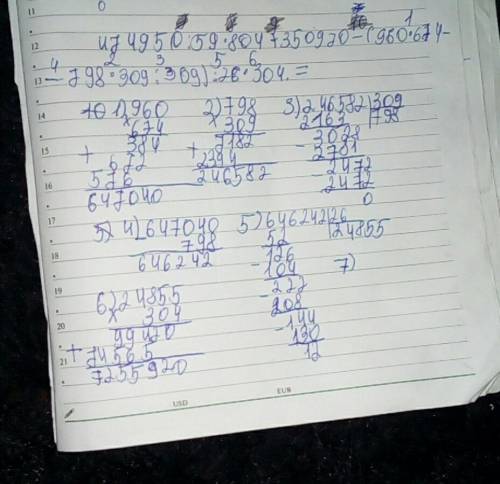 11
0
12
474950:59·804+350920-(960·674-
1
13
4 2 3 5 6
-798·309:309):26·304.=
14
1)960 2)798 3)246582|309
674 309 2163 |798
15
384 7182 3028
+ 672 + 2394 2781
16
576 246582 2472
647040 2472
0
17
4)647040 5)646242|26
798 52 |24855
18
646242 126 7)
104
19
6)24855 222
304 208
20
99420 144
+ 74565 130
21
7555920 12
USD EUR